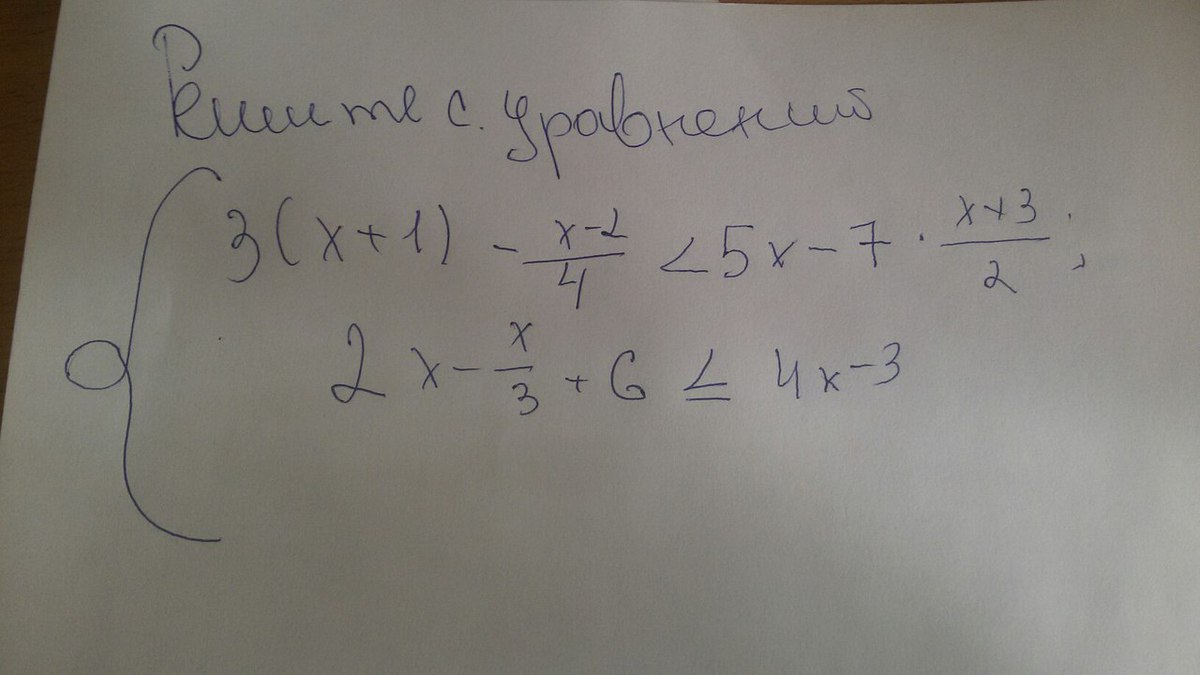 Решите с. уравнений
3(x+1) - \frac{x-2}{4} < 5x - 7 · \frac{x+3}{2};
2x - \frac{x}{3} + 6 ≤ 4x - 3